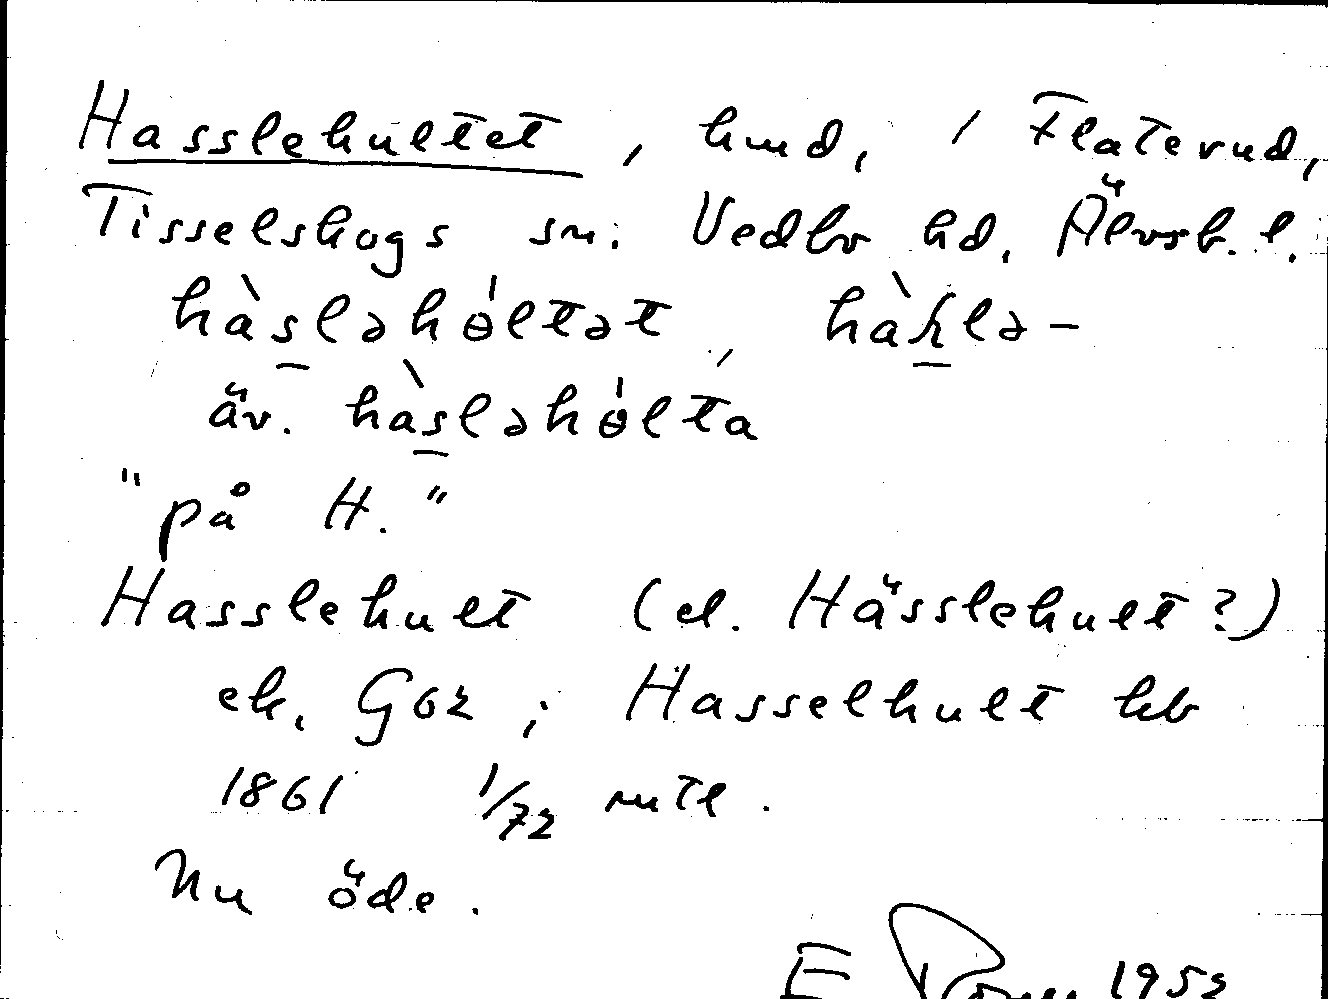 Hasslehultet, hmd, i Flaterud,
Tisselskogs sn. Vedbo hd. Älvsb. l.
hàs̠ləhɵ́ltət, hàh̠lə-
äv. hàs̠ləhɵ́lta
"på H."
Hasslehult (el. Hässlehult?)
ek. G62; Hasselhult hb
1861 1/72 mtl.
Nu öde.
E 1953